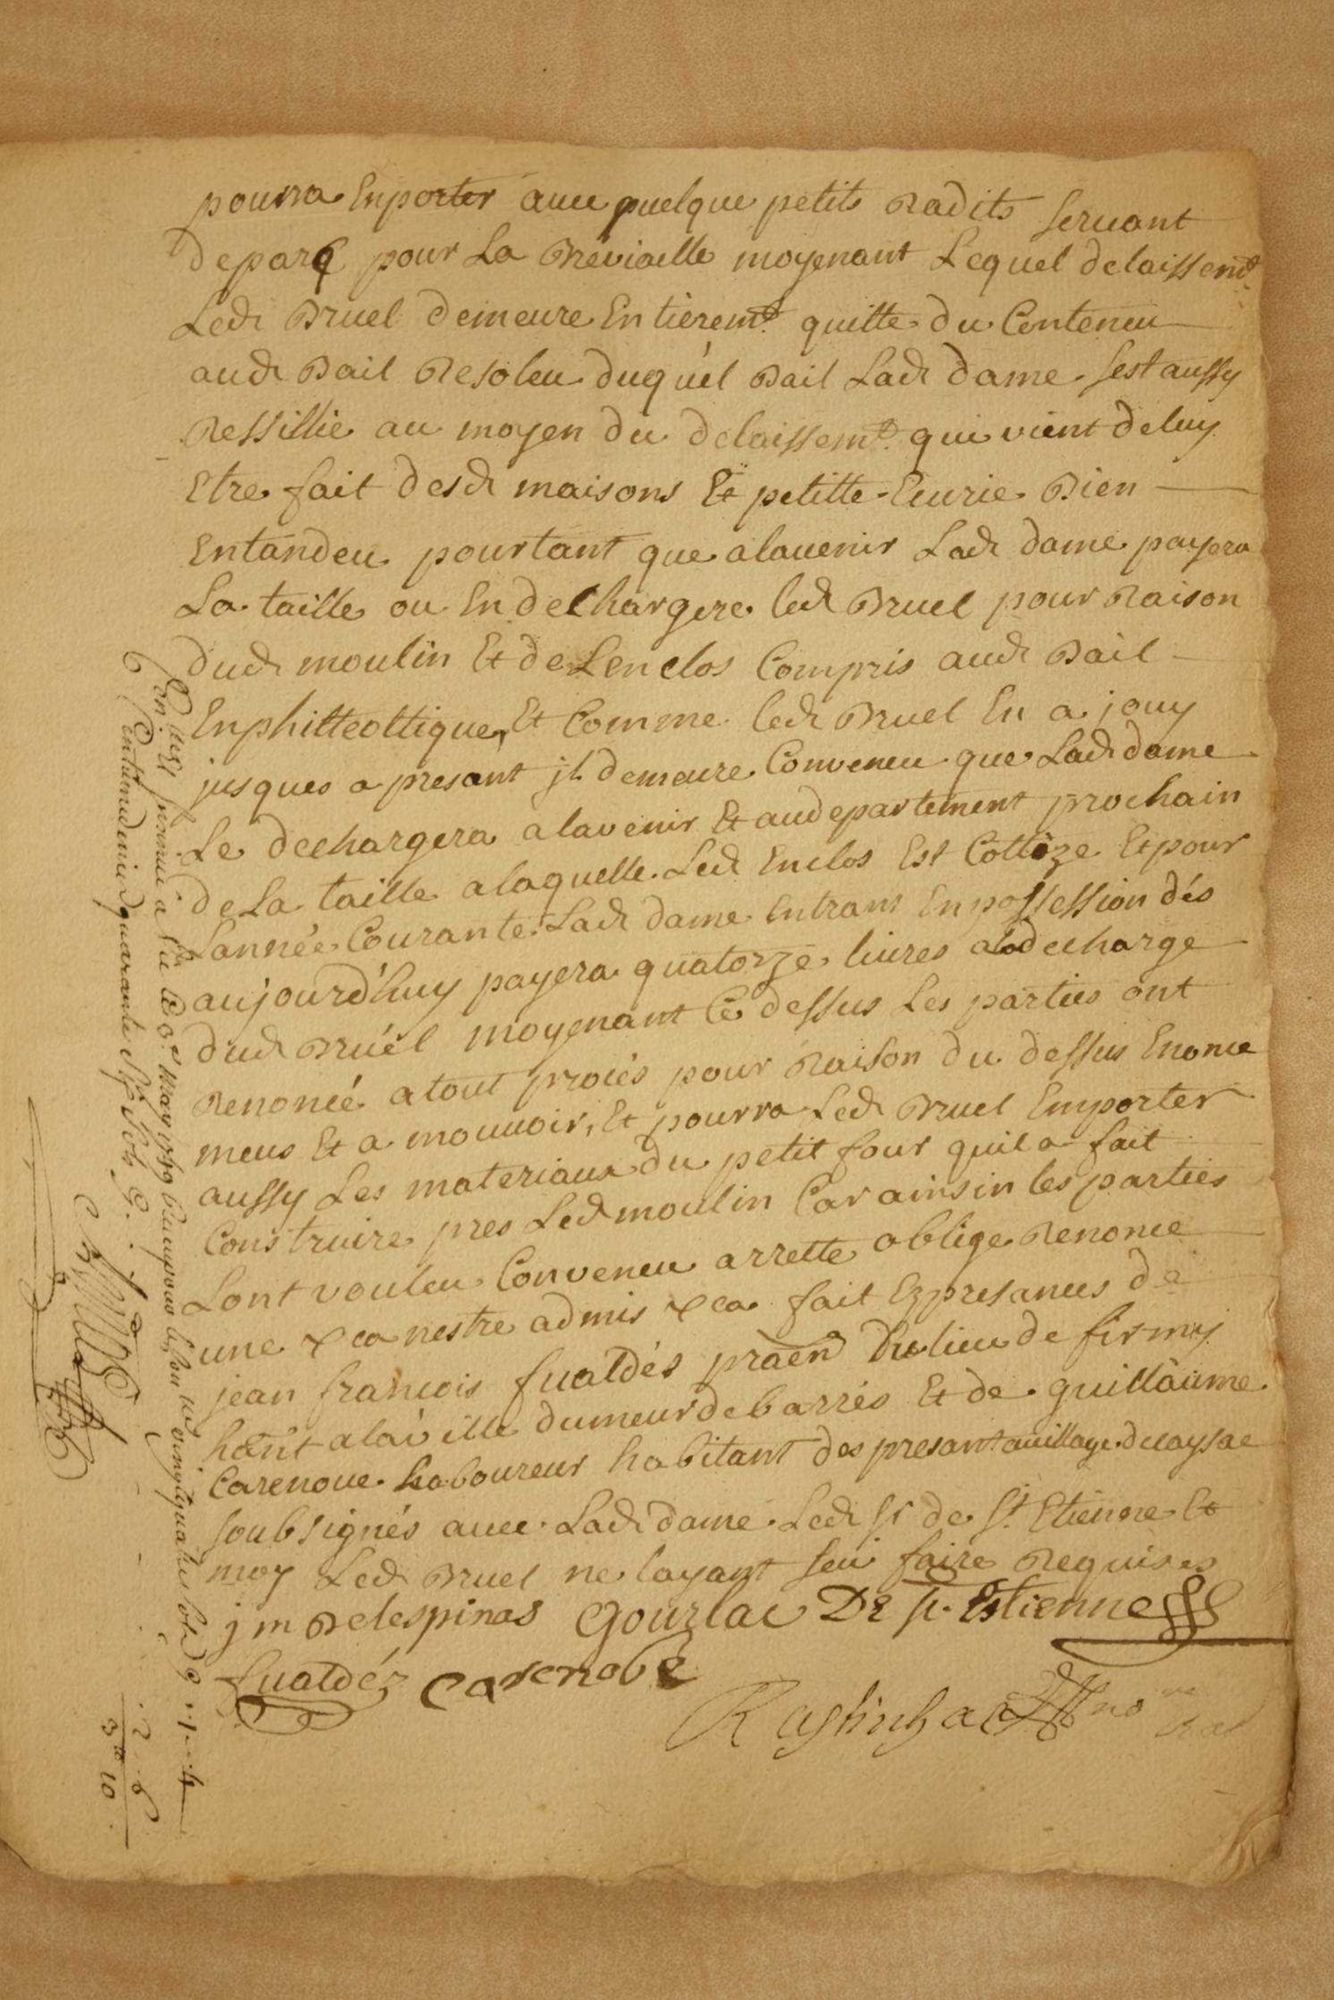 pourra Enporter avec quelque petits Radits servant
deparq pour La Breviaille moyenant Lequel delaissemt.
Ledt Bruel demeure Entieremt. quitte du Conteneu
audt Bail Resoleu duquel Bail Ladt dame sest aussy
Ressillie au moyen du delaissemt. qui vient deluy
Etre fait desdt maisons Et petitte Ecurie Bien
Entandeu pourtant que alauenir Ladt dame payera
La taille ou En dechargere ledt Bruel pour Raison
dudt moulin Et de Lenclos Compris audt Bail
Enphitteottique, Et Comme ledt Bruel En a jouy
jusques a presant jl demeure Conveneu que Ladt dame
Le dechargera alavenir Et audepartement prochain
deLa taille alaquelle Ledt Enclos Est Cottize Et pour
Lannée Courante Ladt dame Entrant Enpossession dés
aujourd'huy payera quatorze liures aladecharge
dudt Bruel moyenant Ce dessus Les parties ont
Renoncé atout procés pour Raison du dessus Enonce
meus Et a mouuoir, Et pourra Ledt Bruel Emporter
aussy Les materiaux du petit four quil a fait
Construire pres Ledt moulin Car ainsin les parties
Lont vouleu Conveneu arrette oblige Renonce
une & ca nestre admis & ca fait Ez presances de
jean francois fualdés praen du lieu de firmy
hant alaville dumeurdebarrés Et de guillaume
Carenoue Laboureur habitant des presant auillage delaysac
soubsignés auec Ladt dame Ledt sr de st. Etienne Et
moy Ledt Bruel ne layant seu faire Requis
jm Delespinas Gourlac De st. Estienne
fualdéz Carenobe